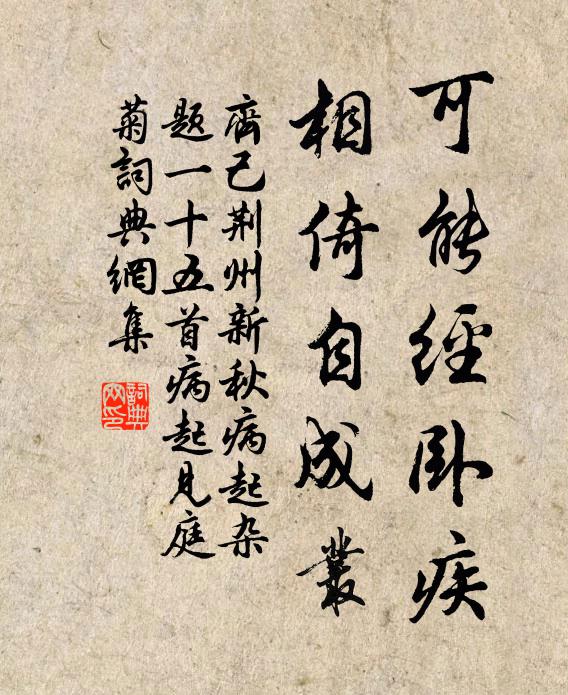 可能經卧疾
相倚自成叢
齊己荆州新秋病起杂
题一十五首病起見庭
菊詞典網集
詞典
网印